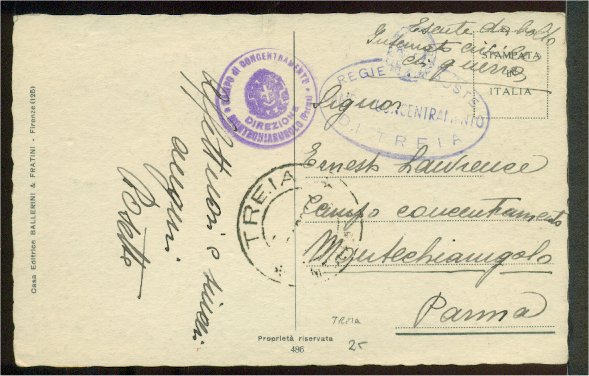 Casa Editrice BALLERINI & FRATINI - Firenze (125)
Affettuosi e
auguri
CAMPO di CONCENTRAMENTO
DIREZIONE
MONTECHIARUGOLO (Parma)
Esente da bollo
Internato civile
di guerra
STAMPATA
IN
ITALIA
REGIE POSTE
CONCENTRAMENTO
DI TREIA
TREIA
Signor
Ernest Lawrence
Campo concentramento
Montechiarugolo
Parma
TREIA
25
Proprietà riservata
486